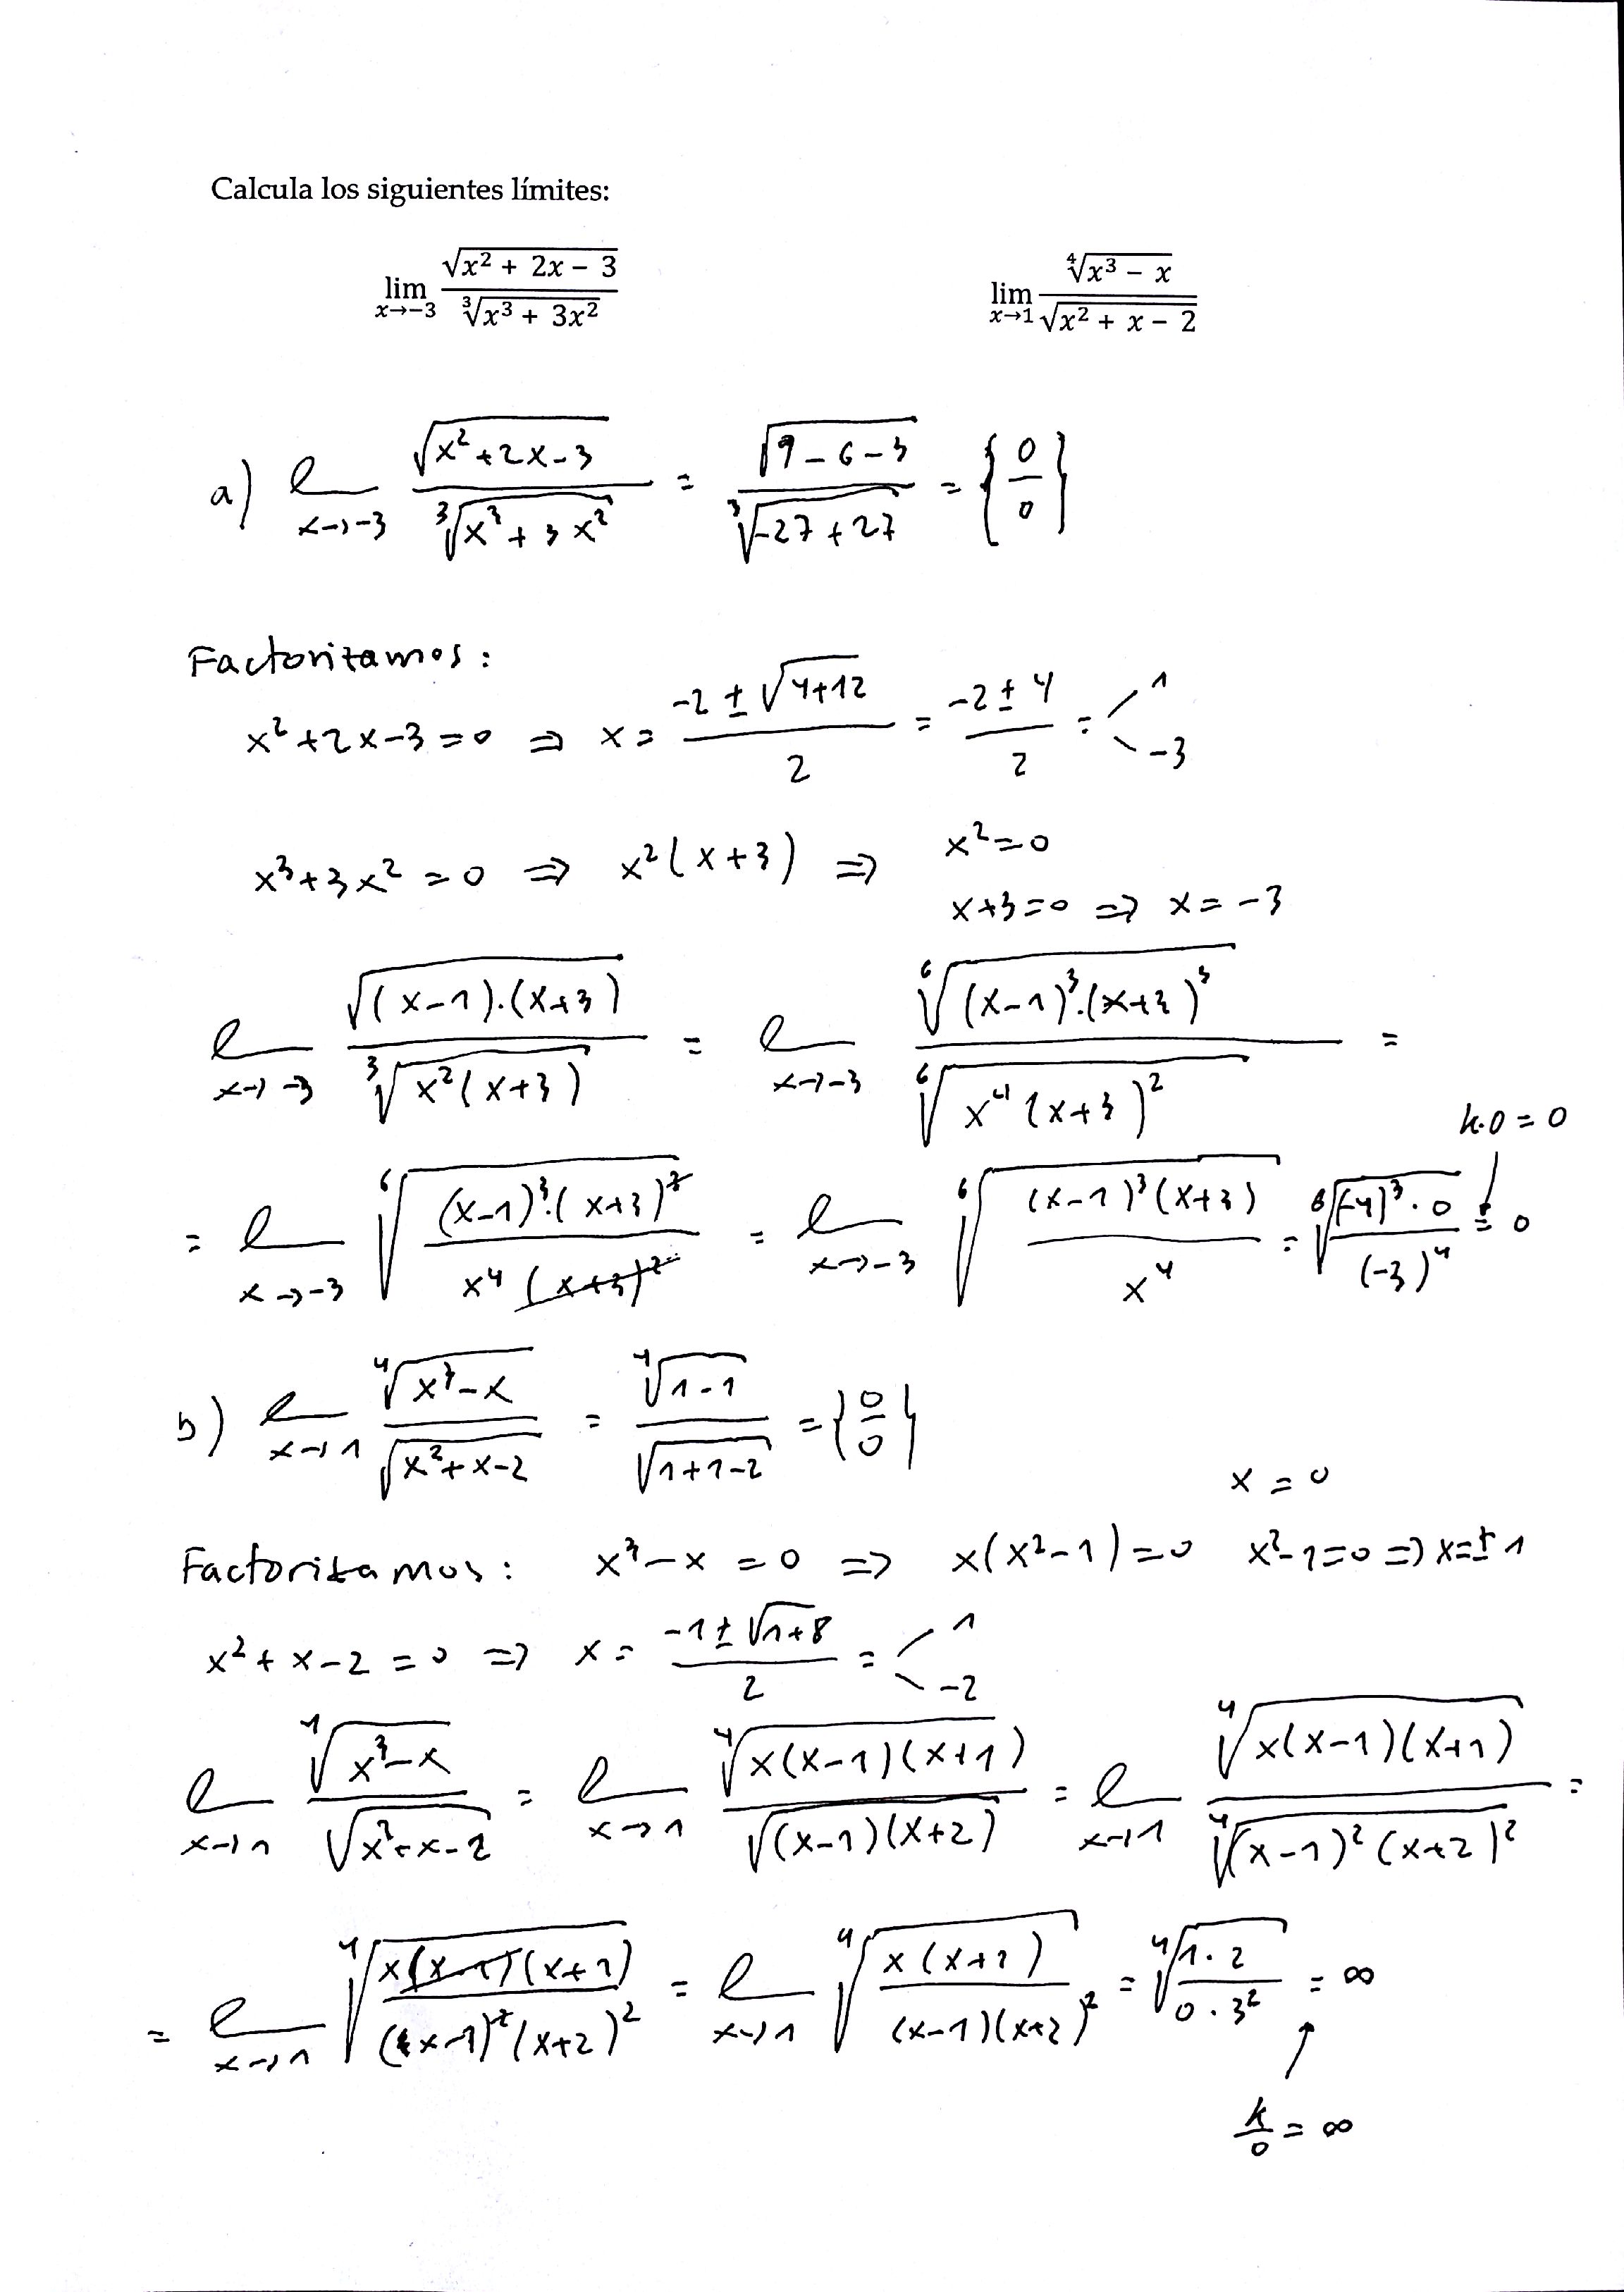 Calcula los siguientes límites:
lim x→-3 √(x² + 2x - 3) / ∛(x³ + 3x²)    lim x→1 ∜(x³ - x) / √(x² + x - 2)
a) l x→-3 √(x²+2x-3) / ∛(x³+3x²) = √(9-6-3) / ∛(-27+27) = {0/0}
Factorizamos:
x²+2x-3=0 ⇒ x = (-2 ± √(4+12)) / 2 = (-2 ± 4) / 2 = < 1 -3
x³+3x²=0 ⇒ x²(x+3) ⇒ x²=0
x+3=0 ⇒ x=-3
l x→-3 √((x-1)·(x+3)) / ∛(x²(x+3)) = l x→-3 ⁶√((x-1)³·(x+3)³) / ⁶√(x⁴(x+3)²) =
k·0=0
= l x→-3 ⁶√((x-1)³·(x+3)³ / x⁴(x+3)²) = l x→-3 ⁶√((x-1)³(x+3) / x⁴) = ⁶√((-4)³·0 / (-3)⁴) = 0
b) l x→1 ∜(x³-x) / √(x²+x-2) = ∜(1-1) / √(1+1-2) = {0/0}
x=0
Factorizamos: x³-x=0 ⇒ x(x²-1)=0 x²-1=0 ⇒ x=±1
x²+x-2=0 ⇒ x = (-1 ± √(1+8)) / 2 = < 1 -2
l x→1 ∜(x³-x) / √(x²+x-2) = l x→1 ∜(x(x-1)(x+1)) / √((x-1)(x+2)) = l x→1 ∜(x(x-1)(x+1)) / ∜((x-1)²(x+2)²) =
= l x→1 ∜(x(x-1)(x+1) / (x-1)²(x+2)²) = l x→1 ∜(x(x+1) / (x-1)(x+2)²) = ∜(1·2 / 0·3²) = ∞
k/0 = ∞